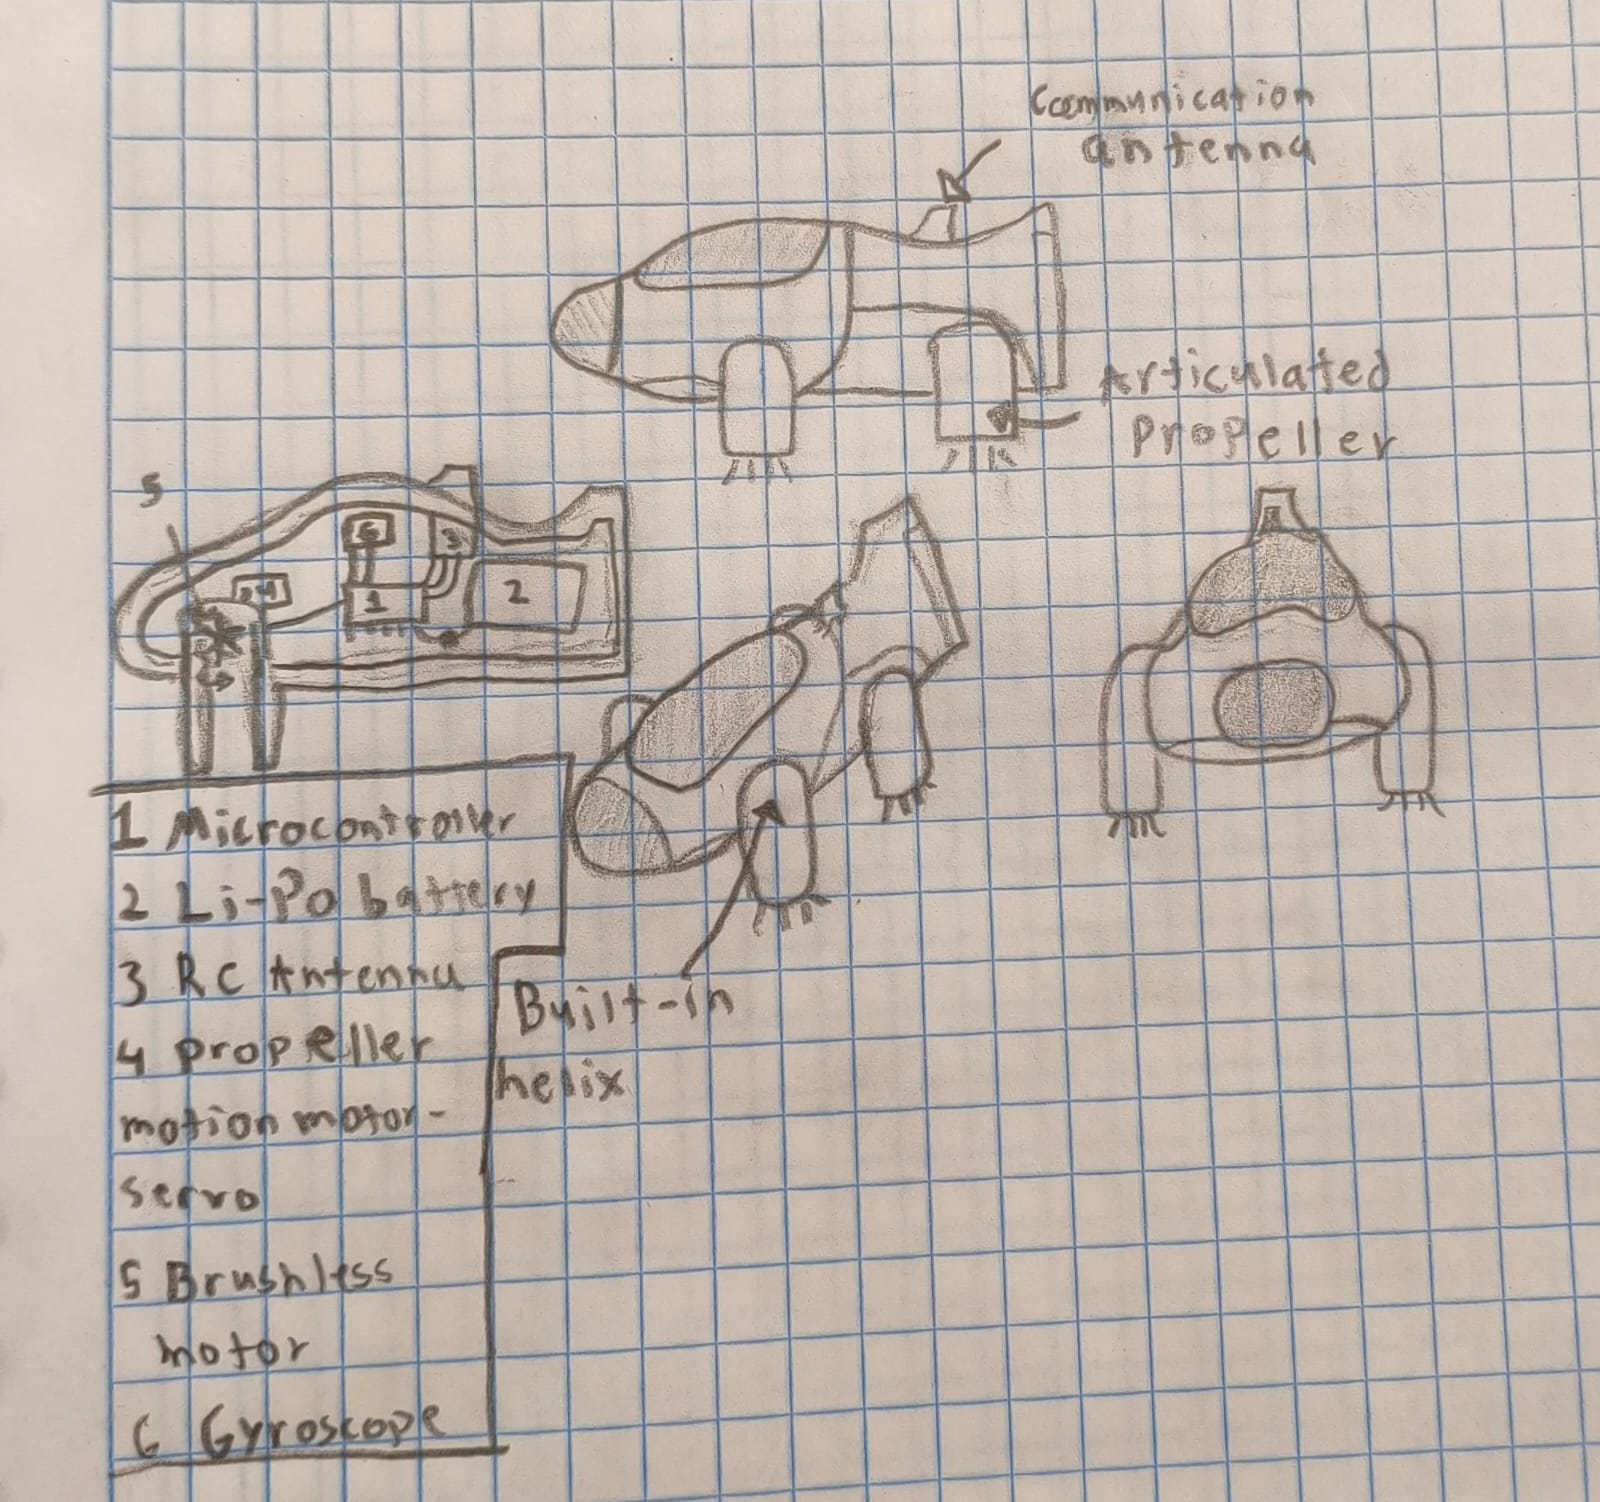 Communication
antenna
Articulated
Propeller
5
6
3
4
1
2
1 Microcontroller
2 Li-Po battery
3 RC Antenna
4 propeller
motion motor-
servo
5 Brushless
motor
6 Gyroscope
Built-in
helix